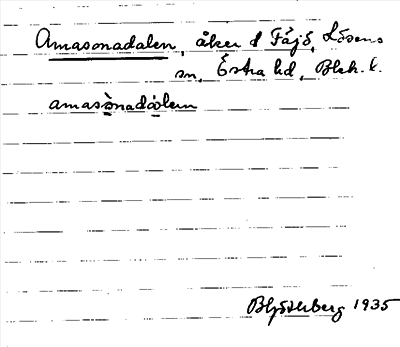 Amasonadalen, åker å Fäjö, Lösens
sn, Östra hd, Blek. l.
amasònadàlen
1935